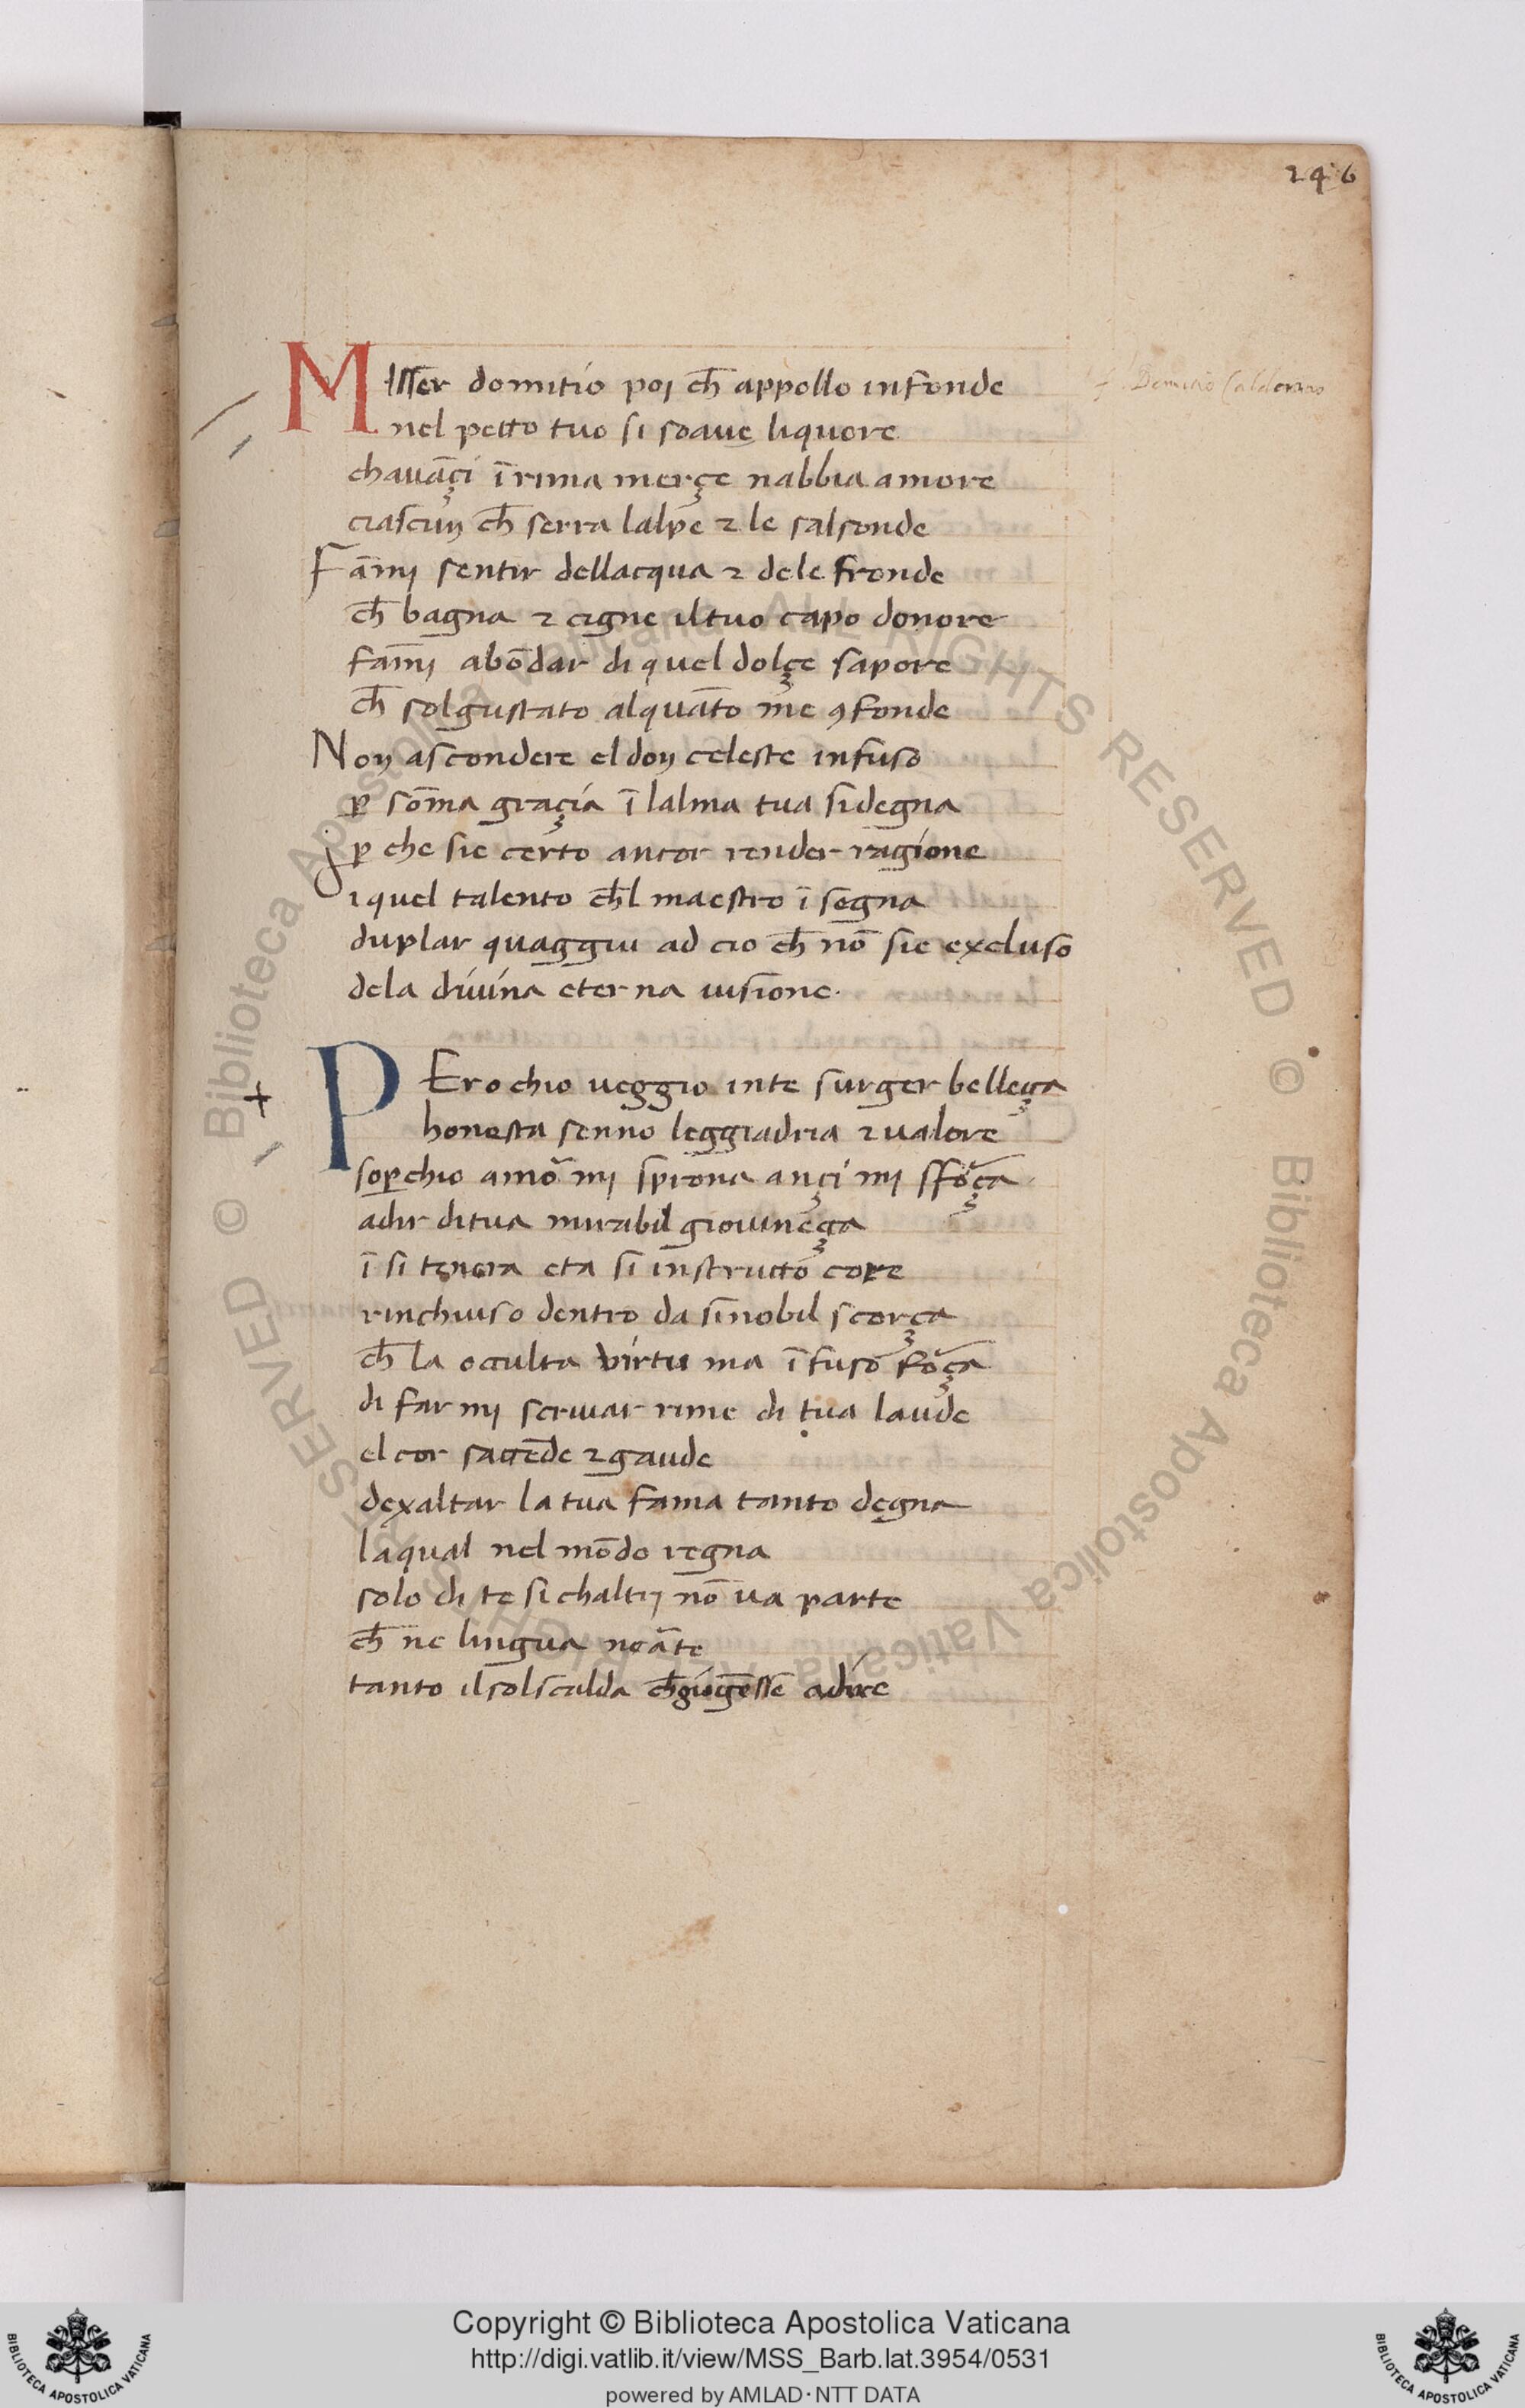 246
Misser domitio poi ch̄ appollo infonde
Domitio Calderino
nel petto tuo si soaue liquore
chauāçi ī rima merçe nabbia amore
ciascun ch̄ serra lalpe ⁊ le salsonde
Fāmi sentir dellacqua ⁊ dele fronde
ch̄ bagna ⁊ cigne il tuo capo donore
fāmi abōdar di quel dolçe sapore
ch̄ sol gustato alquāto me ꝯfonde
Non ascondere el don celeste infuso
ꝑ sōma graçia ī lalma tua si degna
ꝑ che sie certo ancor render ragione
i quel talento ch̄l maestro īsegna
duplar quaggiu ad cio ch̄ nō sie excluso
dela diuina eterna uisione.
PEro chio ueggio inte surger belleça
+
honesta senno leggiadria ⁊ ualore
soꝑchio amō mi sprona ançi mi sfōça
adir di tua mirabil giouineça
ī si tenera eta si instructo core
rinchiuso dentro da si nobil scorça
ch̄ la occulta virtu ma īfuso fōça
di far mi scriuar rime di tua laude
el cor saccēde ⁊ gaude
dexaltar la tua fama tanto degna
laqual nel mōdo regna
solo di te si chaltri nō ua parte
ch̄ ne lingua ne āte
tanto il sol scalda ch̄ giūgesse adire
© Biblioteca Apostolica Vaticana ALL RIGHTS RESERVED © Biblioteca Apostolica Vaticana ALL RIGHTS RESERVED
BIBLIOTECA APOSTOLICA VATICANA
Copyright © Biblioteca Apostolica Vaticana
http://digi.vatlib.it/view/MSS_Barb.lat.3954/0531
powered by AMLAD·NTT DATA
BIBLIOTECA APOSTOLICA VATICANA